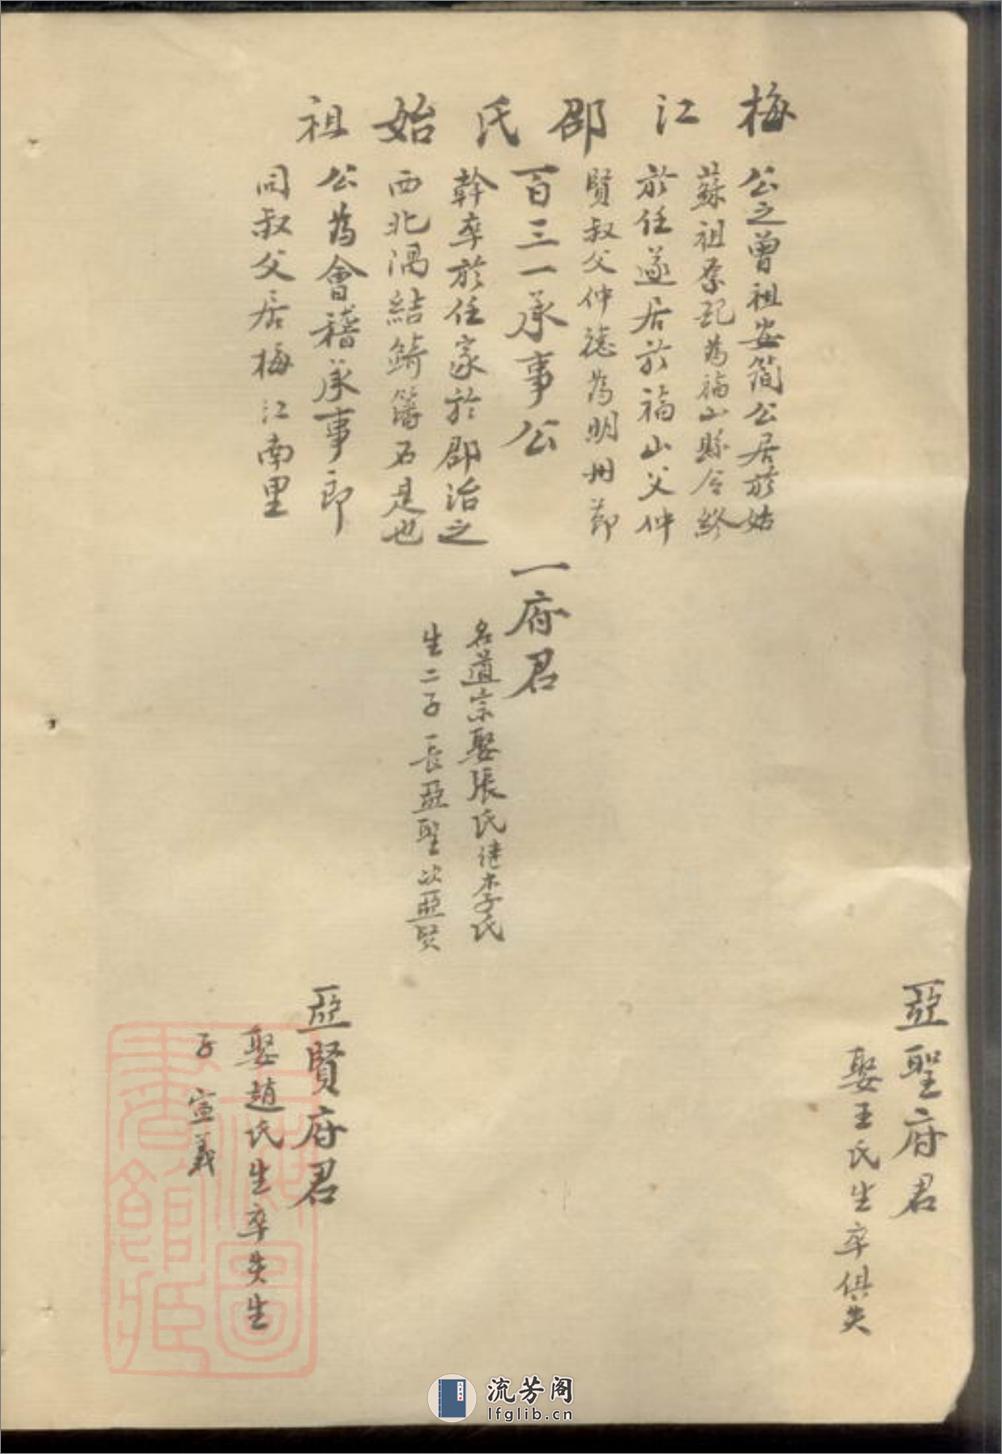 梅江邵氏始祖
公之曾祖安簡公居於姑
蘇祖奈記為福山縣令終
於任遂居於福山父仲
賢叔父仲德為明州節
百三一承事公
幹卒於任家於郡治之
西北隅結錡籓石是也
公為會稽承事郎
同叔父居梅江南里
一府君
名道宗娶張氏继李氏
生二子長亞聖次亞賢
亞聖府君
娶王氏生卒俱失
亞賢府君
娶趙氏生卒失生
子宣義
上海圖書館藏
流芳阁
lfglib.cn